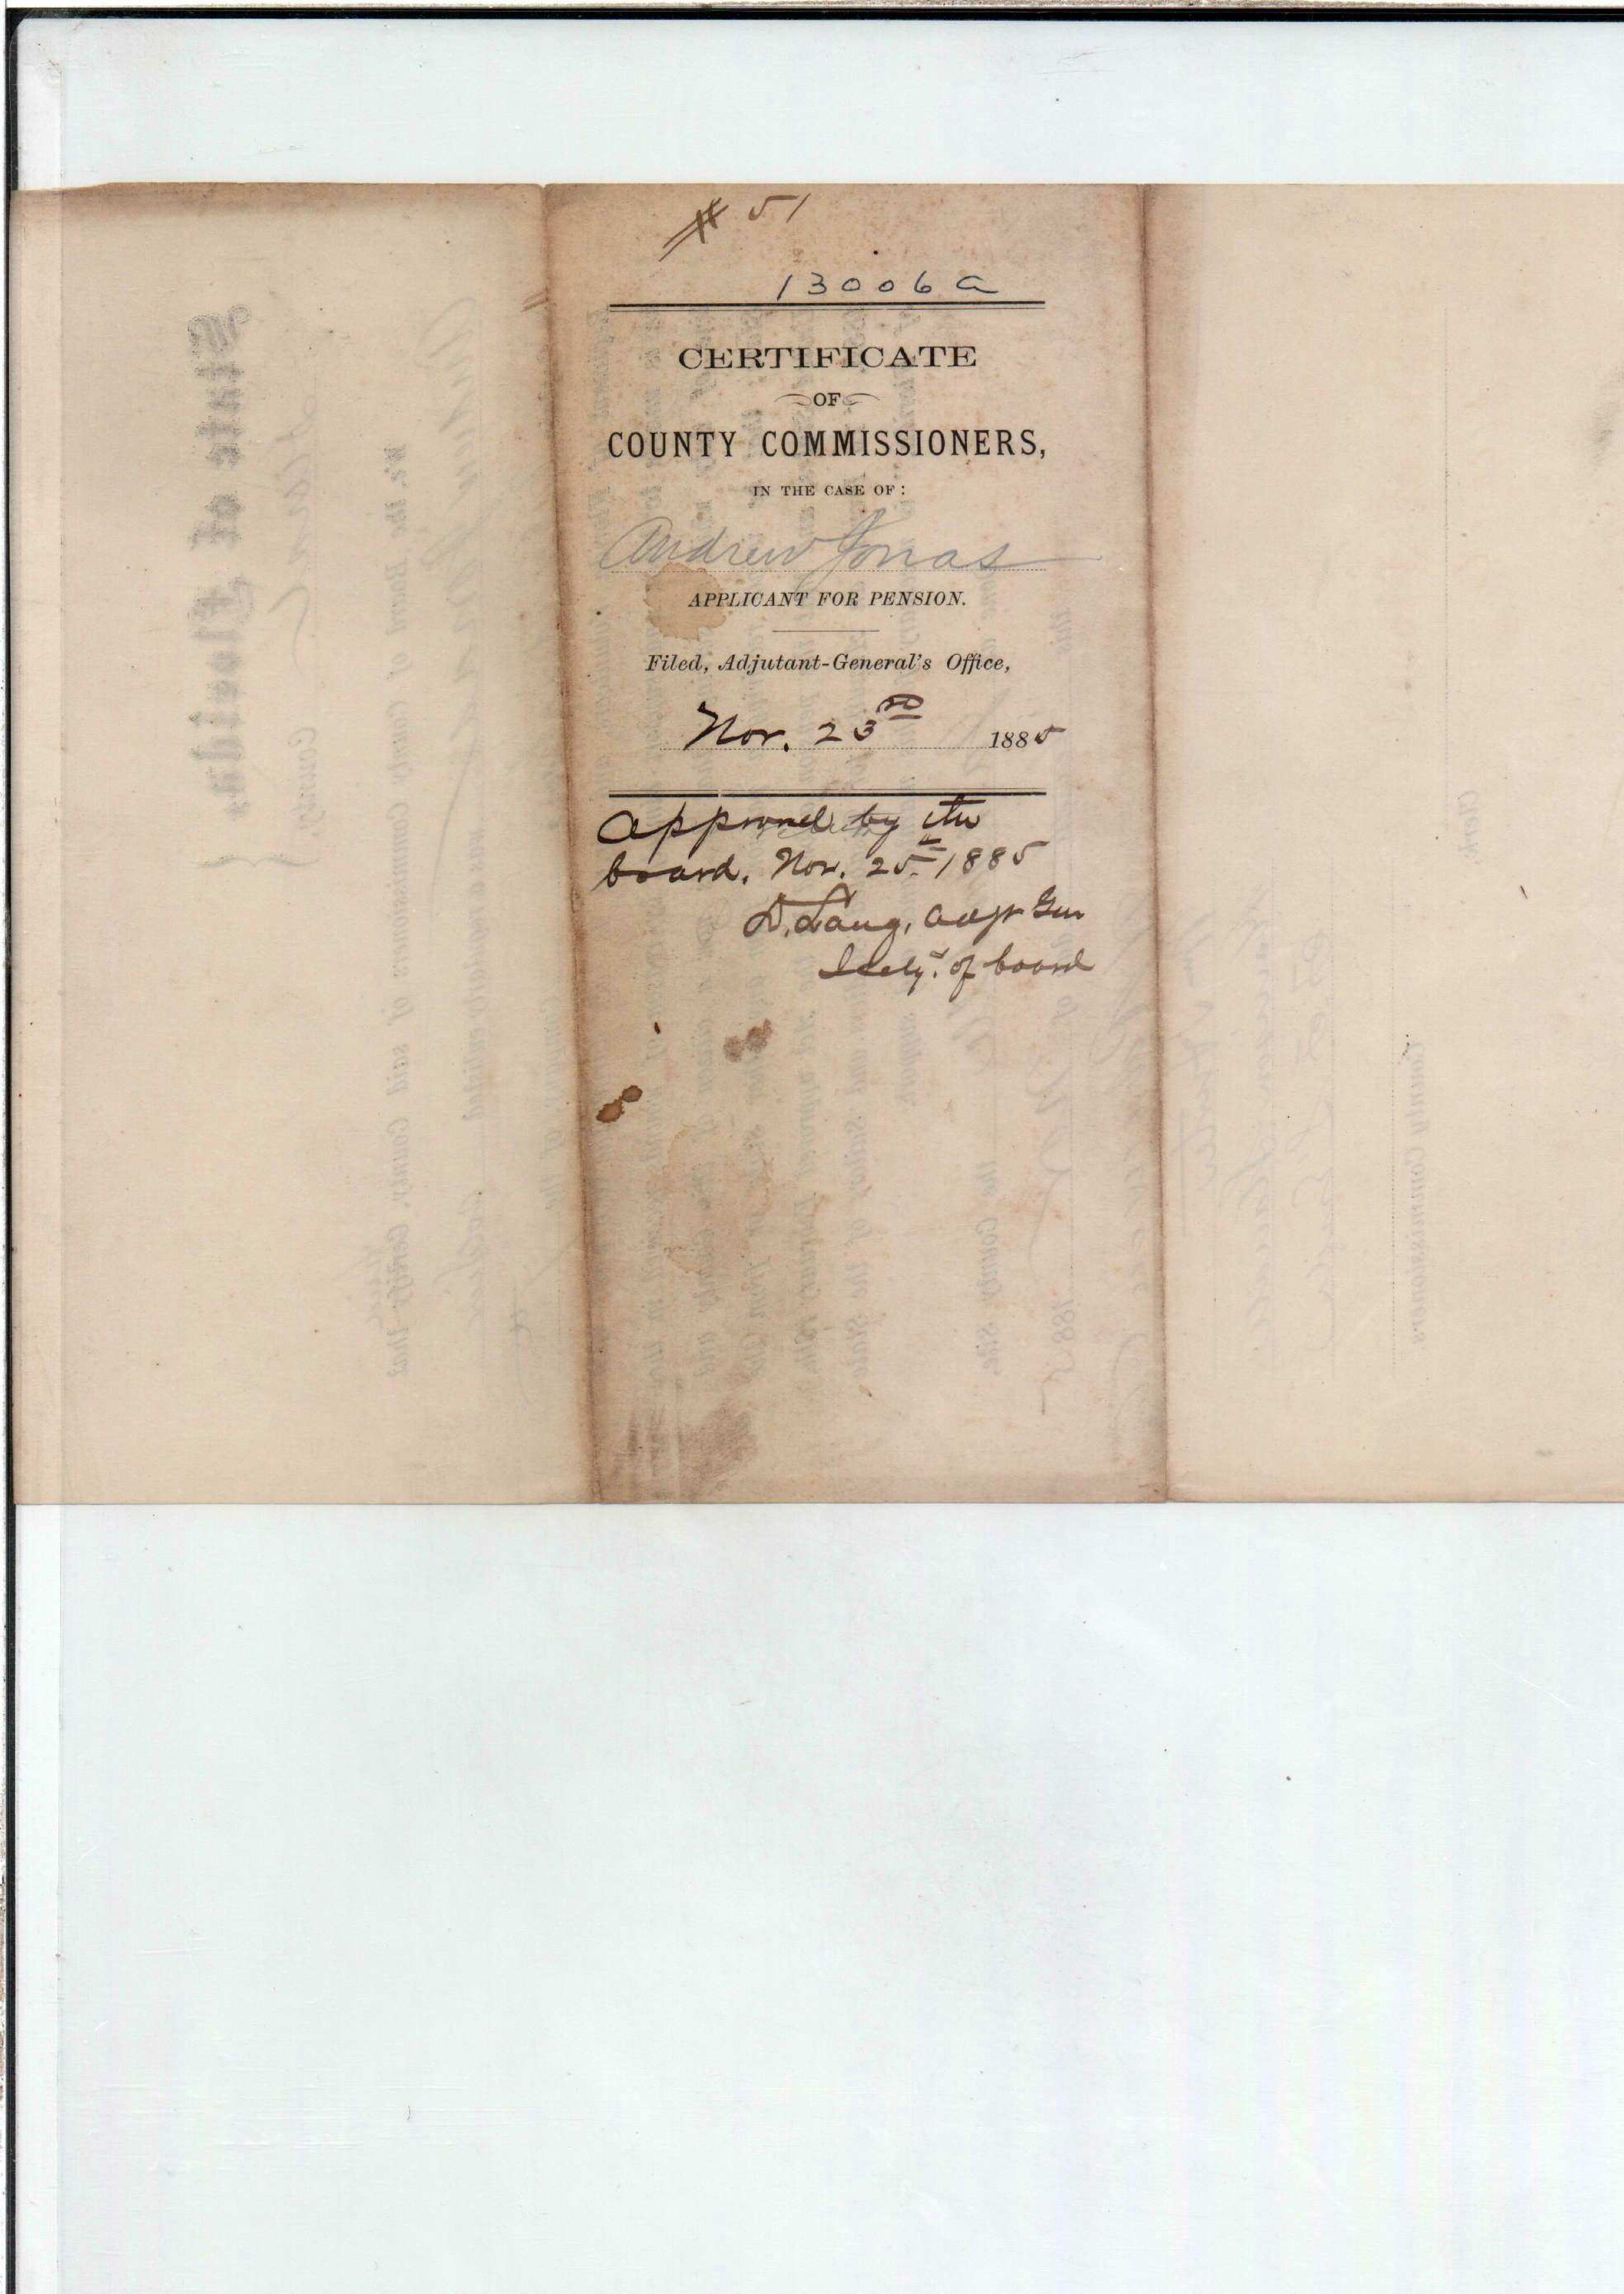 # 51
13006a
CERTIFICATE
OF
COUNTY COMMISSIONERS,
IN THE CASE OF:
Andrew Jonas
APPLICANT FOR PENSION.
Filed, Adjutant-General's Office,
Nov. 23rd 1885
Approved by the
board. Nov. 25th 1885
D. Lang, Adjt Gen
Secty. of board